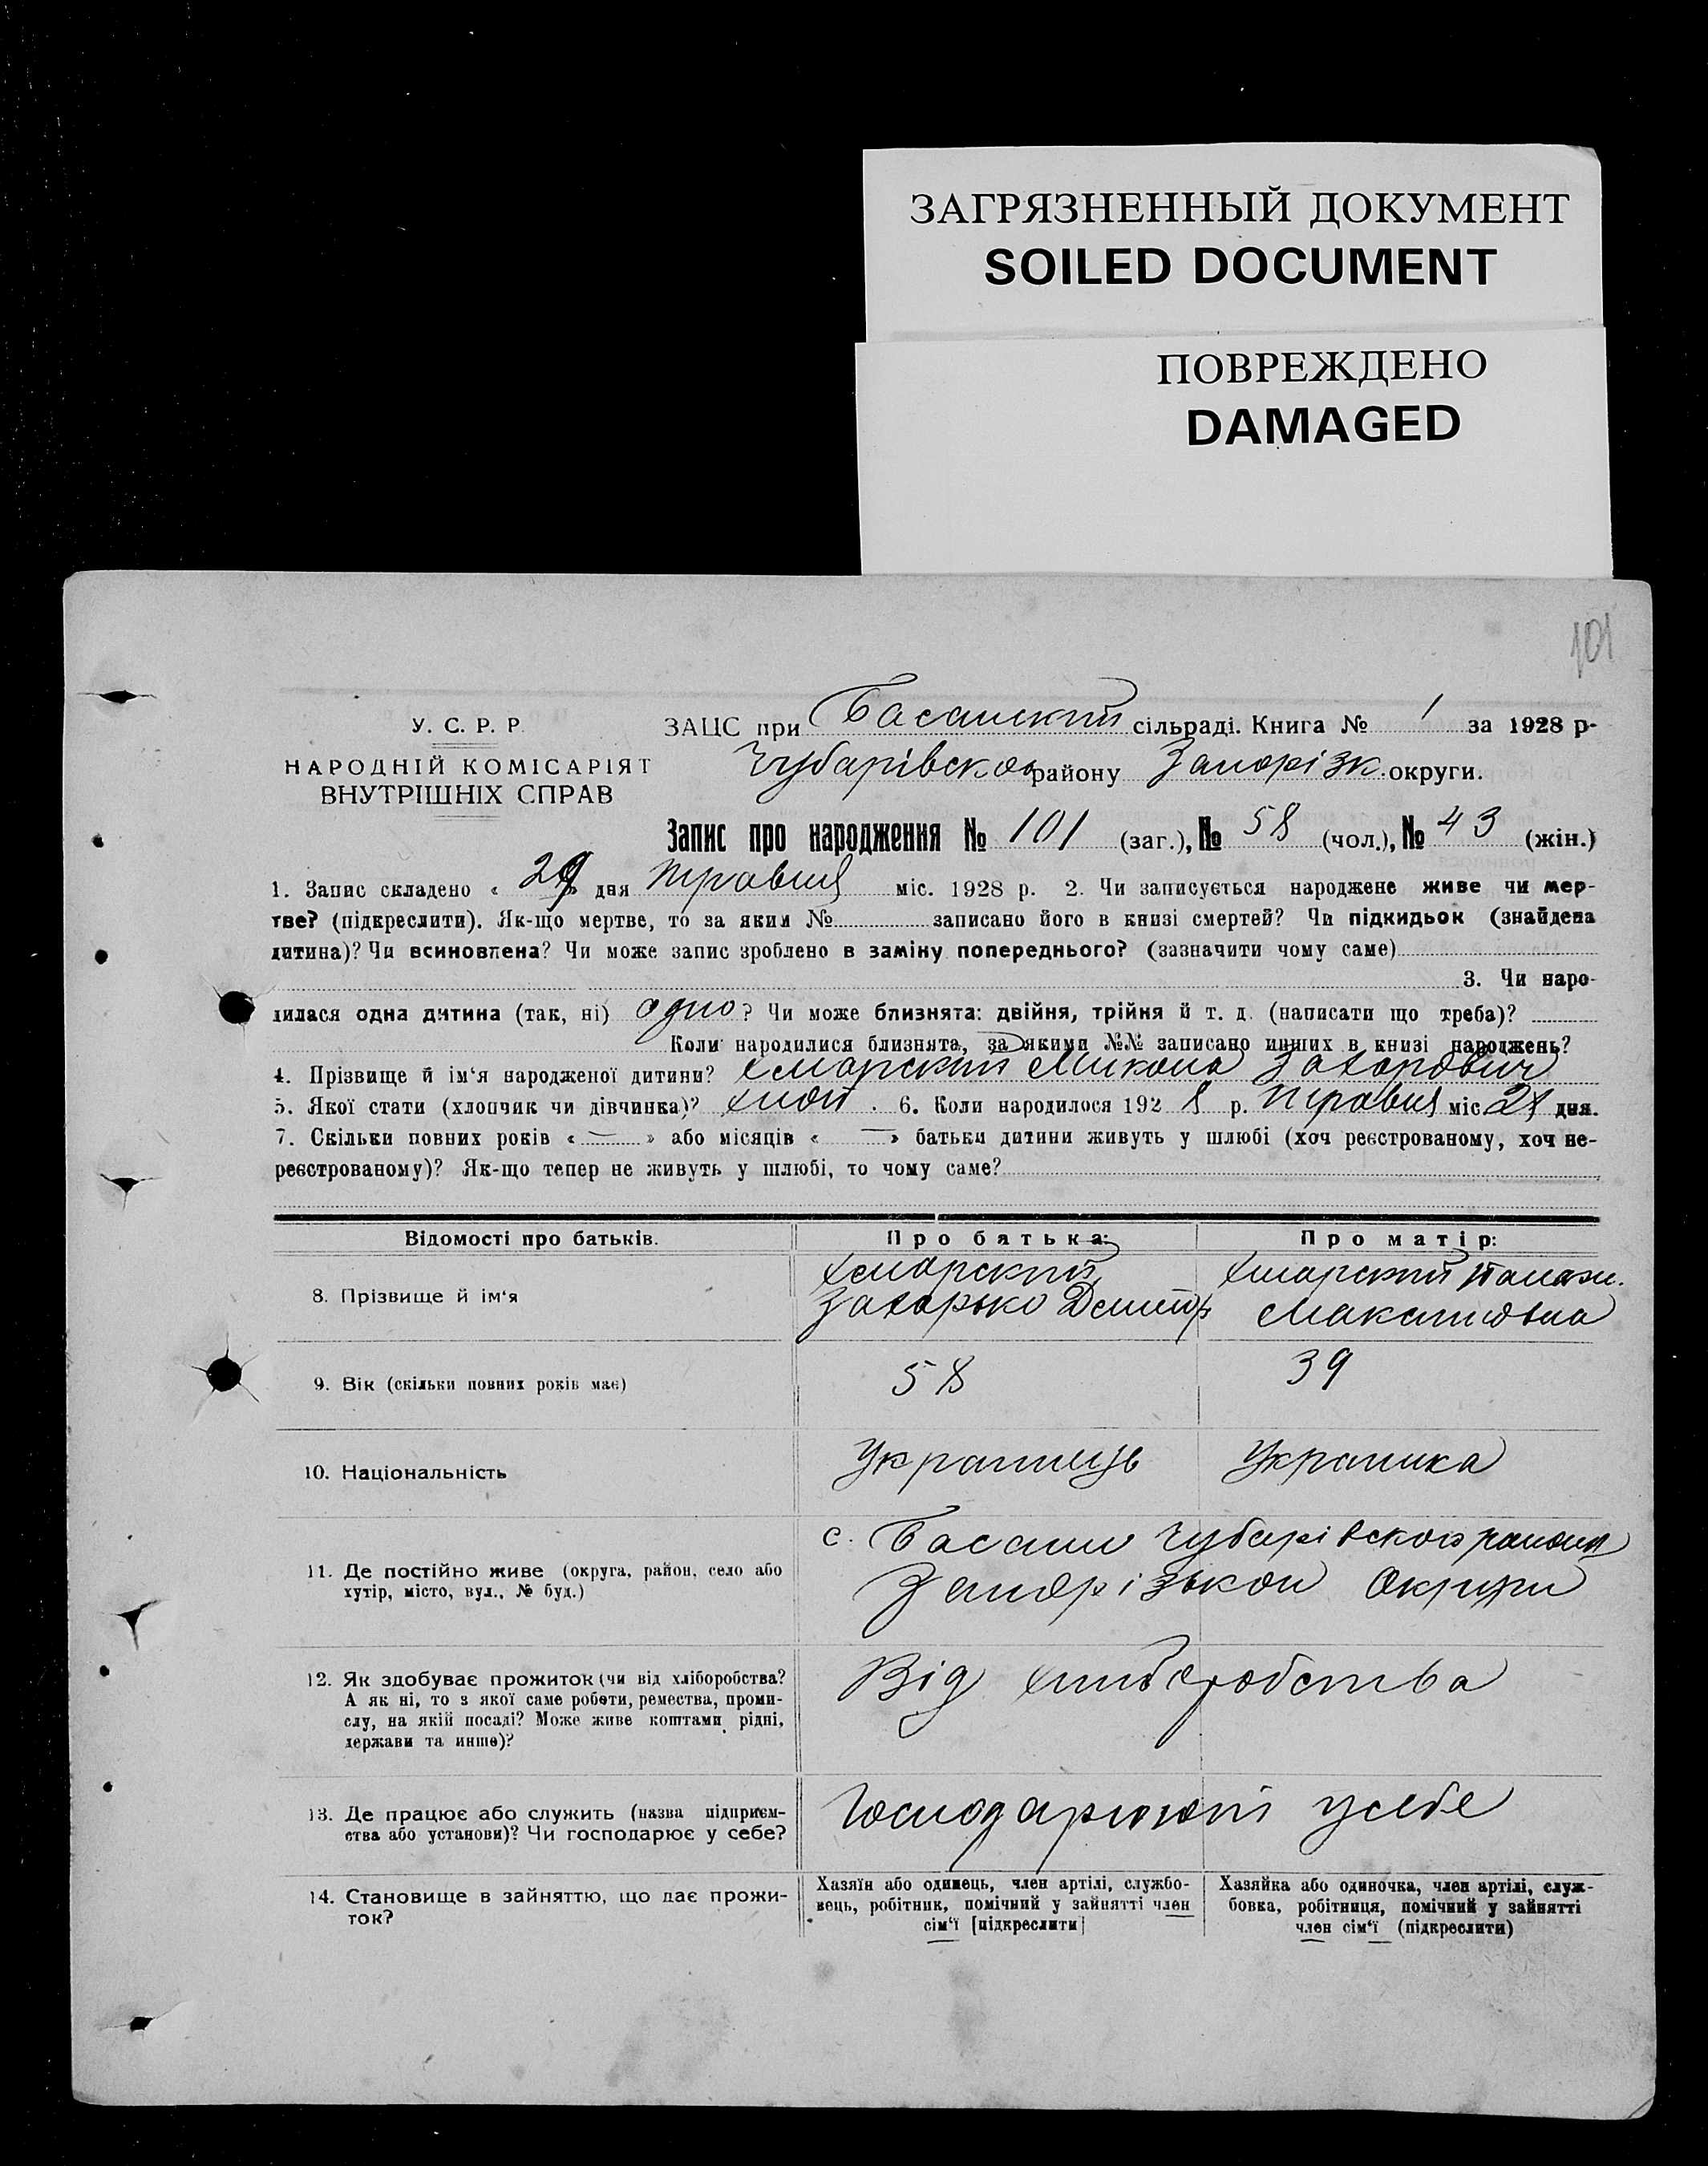 ЗАГРЯЗНЕННЫЙ ДОКУМЕНТ
SOILED DOCUMENT
ПОВРЕЖДЕНО
DAMAGED
101
У. С. Р. Р.
НАРОДНІЙ КОМІСАРІЯТ
ВНУТРІШНІХ СПРАВ
ЗАЦС при Басанский сільраді. Книга № 1 за 1928 р-
Чубарівской району Запорізк. округи.
Запис про народження № 101 (заг.), № 58 (чол.), № 43 (жін.)
1. Запис складено « 29 » дня травня міс. 1928 р. 2. Чи записується народжене живе чи мер-
тве? (підкреслити). Як-що мертве, то за яким № записано його в книзі смертей? Чи підкидьок (знайдена
дитина)? Чи всиновлена? Чи може запис зроблено в заміну попереднього? (зазначити чому саме)
3. Чи наро-
дилася одна дитина (так, ні) одно? Чи може близнята: двійня, трійня й т. д. (написати що треба)?
Коли народилися близнята, за якими №№ записано инших в книзі народжень?
4. Прізвище й ім'я народженої дитини? Хмарский Микола Захарович
5. Якої стати (хлопчик чи дівчинка)? 6. Коли народилося 1928 р. травня міс 28 дня.
7. Скільки повних років « — » або місяців « — » батьки дитини живуть у шлюбі (хоч реєстрованому, хоч не-
реєстрованому)? Як-що тепер не живуть у шлюбі, то чому саме?
Відомості про батьків.
Про батька:
Про матір:
8. Прізвище й ім'я
Хмарский
Захарько
Хмарский
Максимовна
9. Вік (скільки повних років має)
58
39
10. Національність
Украинець
Украинка
11. Де постійно живе (округа, район, село або
хутір, місто, вул., № буд.)
с. Басани Чубарівского района
Запорізькой Округи
12. Як здобуває прожиток (чи від хліборобства?
А як ні, то з якої саме роботи, ремества, проми-
слу, на якій посаді? Може живе коштами рідні,
держави та инше)?
Від хлиборобства
13. Де працює або служить (назва підприєм-
ства або установи)? Чи господарює у себе?
Господарюют усебе
14. Становище в зайняттю, що дає прожи-
ток?
Хазяїн або одинець, член артілі, службо-
вець, робітник, помічний у зайнятті член
сім'ї [підкреслити]
Хазяйка або одиночка, член артілі, служ-
бовка, робітниця, помічний у зайнятті
член сім'ї (підкреслити)